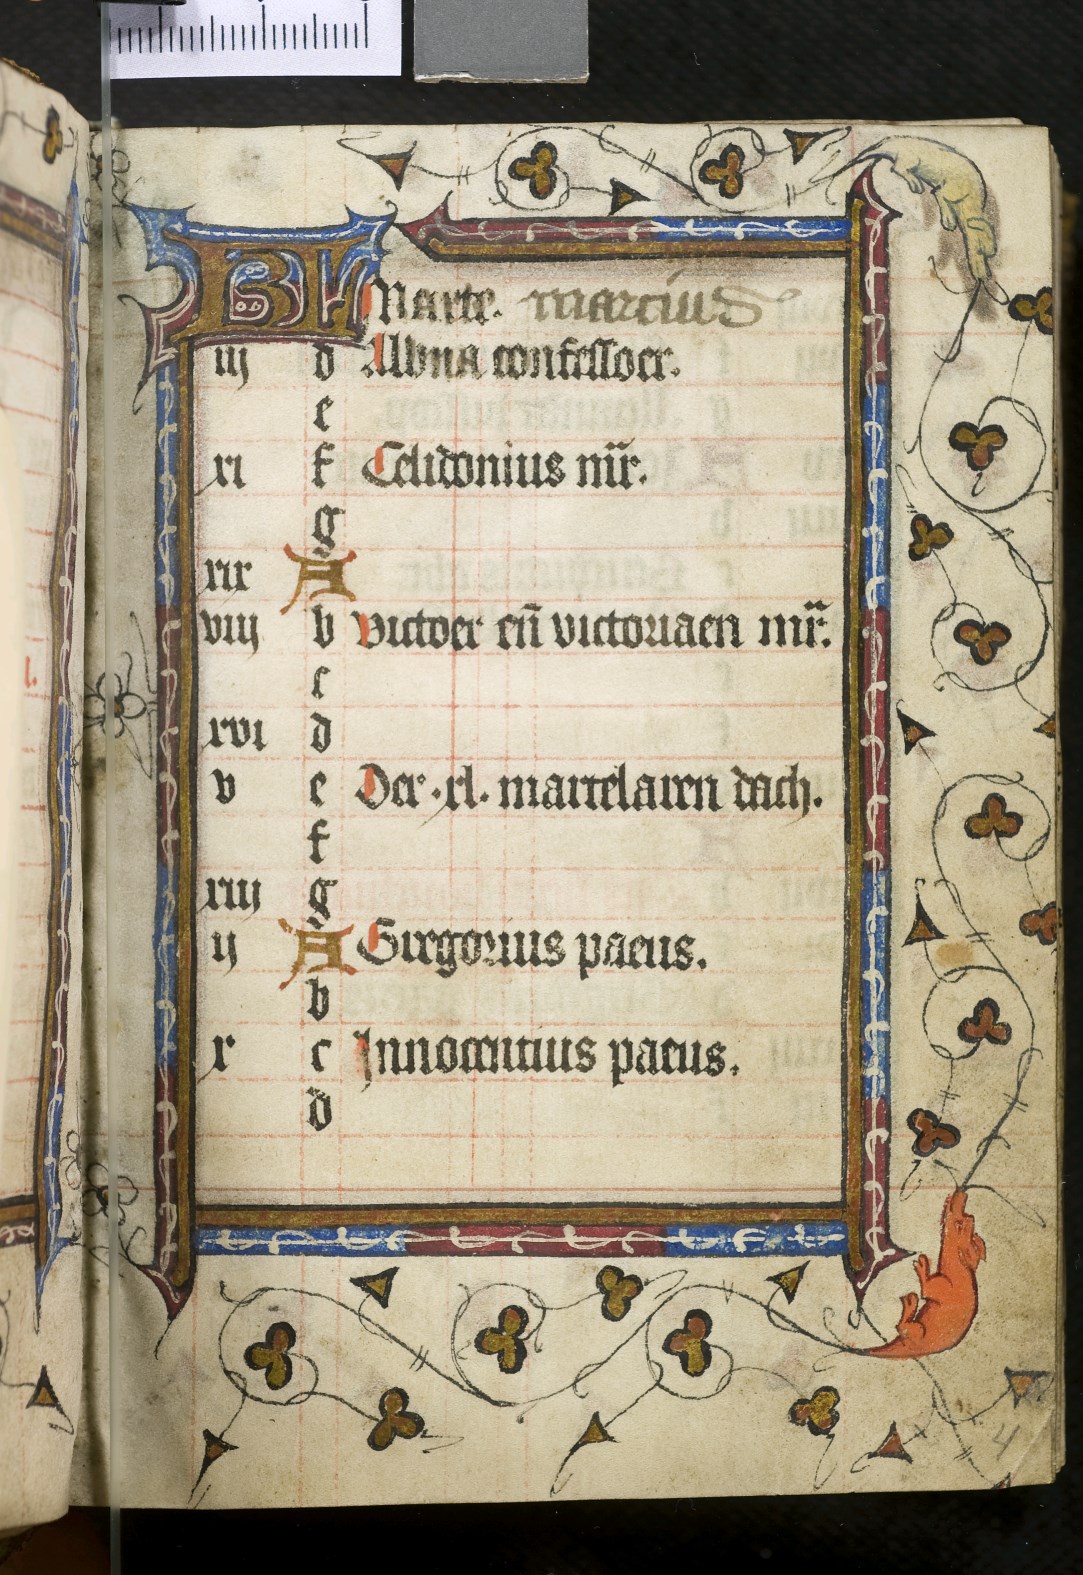 KL Marte. marcius
iij d Albijn confessoer.
e
xi f Celidonius mr̄.
g
xix A
viij b victoer en̄ victoriaen mr̄.
c
xvi d
v e Der .xl. martelaren dach.
f
xiij g
ij A Gregorius paeus.
b
x c Innocentius paeus.
d
4